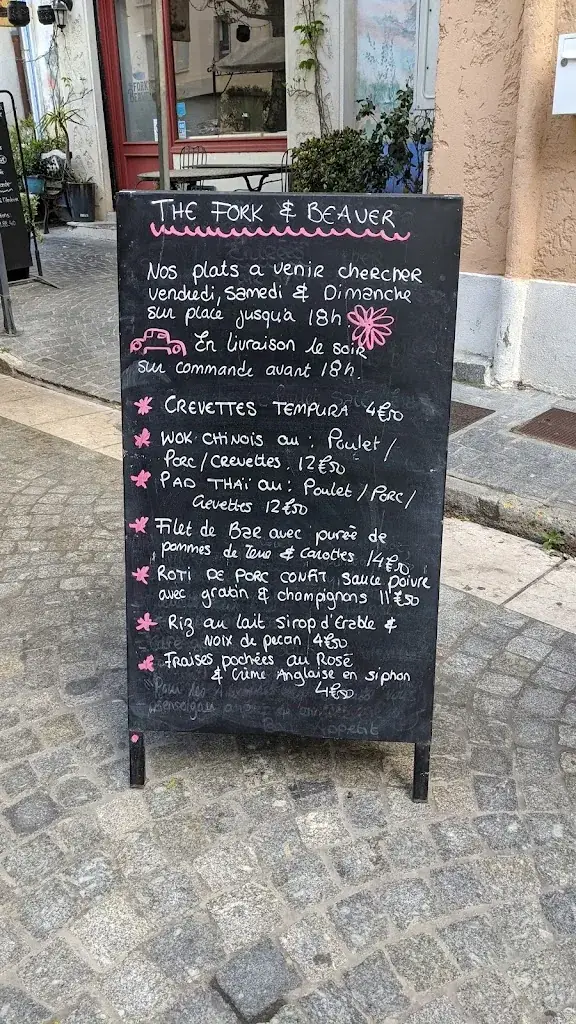 THE FORK & BEAVER
Nos plats a venir chercher
vendredi, samedi & Dimanche
sur place jusqu'a 18h
En livraison le soir
sur commande avant 18h.
CREVETTES TEMPURA 4€50
WOK CHINOIS au : Poulet /
PORC / CREVETTES. 12€50
PAD THAÏ au : Poulet / PORC /
Crevettes 12€50
Filet de Bar avec purée de
pommes de Terre & Carottes 14€50
ROTI DE PORC CONFIT sauce poivre
avec gratin & champignons 11€50
Riz au lait sirop d'Erable &
NOIX de pecan 4€50
Fraises pochées au Rosé
& Crème Anglaise en siphon
4€50